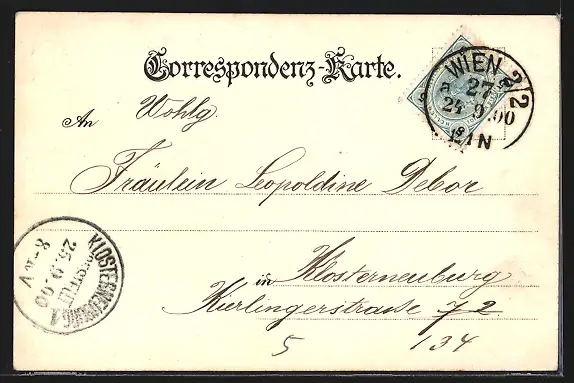 Correspondenz-Karte.
WIEN 2/2
27
24.9.00
An Wohlg.
Fräulein Leopoldine Debor
in Klosterneuburg
Kierlingerstrasse 72
5 134
KLOSTERNEUBURG 1
25.9.00
8-V